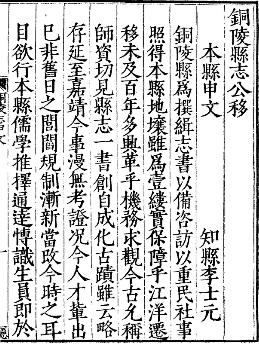 銅陵縣志公移
本縣申文
知縣李士元
銅陵縣爲撰緝志書以備咨訪以重民社事
照得本縣地壤雖爲壹縷實保障乎江洋遷
移未及百年多興革乎機務求觀今古尤稱
師資切見縣志一書創自成化古蹟雖云略
存延至嘉靖今事漫無考證况今人才輩出
已非舊日之閭閻規制漸新當改今時之耳
目欲行本縣儒學推擇通達博識生員卽於